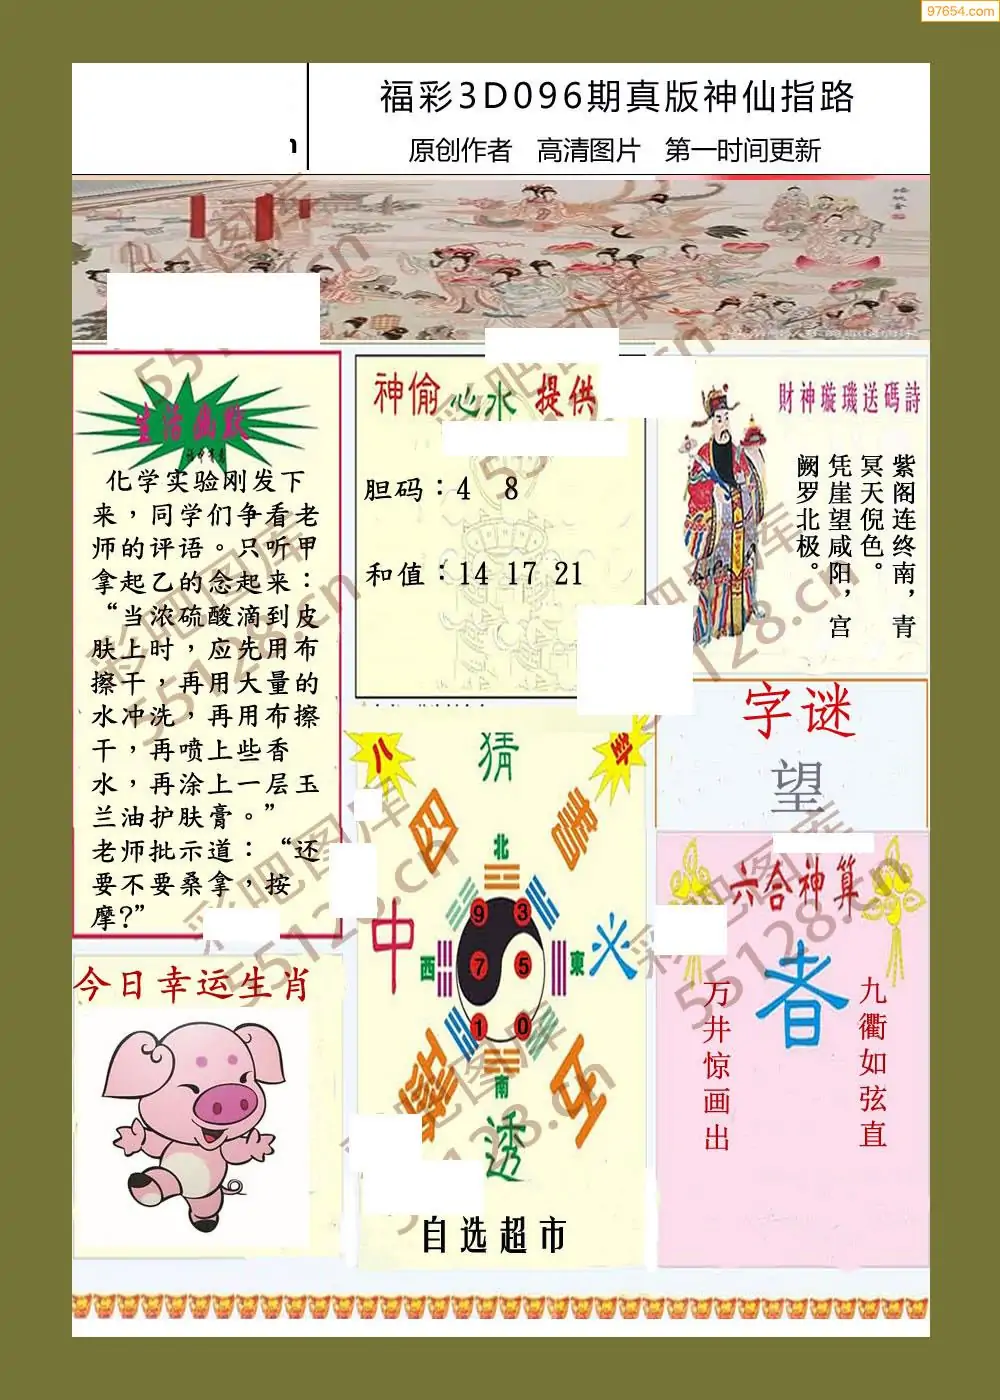 97654.com
1
福彩3D096期真版神仙指路
原创作者 高清图片 第一时间更新
生活幽默
化学实验刚发下
来，同学们争看老
师的评语。只听甲
拿起乙的念起来：
“当浓硫酸滴到皮
肤上时，应先用布
擦干，再用大量的
水冲洗，再用布擦
干，再喷上些香
水，再涂上一层玉
兰油护肤膏。”
老师批示道：“还
要不要桑拿，按
摩?”
今日幸运生肖
神偷心水提供
胆码：4 8
和值：14 17 21
八
卦
猜
北
中
西
9
3
7
5
1
0
東
火
南
透
自选超市
財神璇璣送碼詩
紫阁连终南，青
冥天倪色。
凭崖望咸阳，宫
阙罗北极。
字谜
望
六合神算
者
万井惊画出
九衢如弦直
彩吧图库
55128.cn
彩吧图库
55128.cn
彩吧图库
55128.cn
彩吧图库
55128.cn
彩吧图库
55128.cn